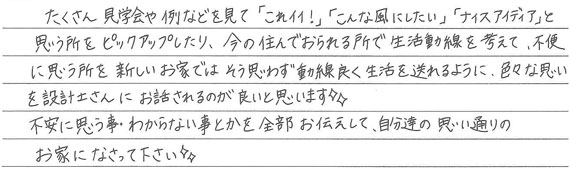 たくさん 見学会や例などを見て「これイイ!」「こんな風にしたい」「ナイスアイディア」と
思う所を ピックアップしたり、今の住んでおられる所で 生活動線を 考えて、不便
に思う所を 新しいお家では そう思わず動線良く 生活を 送れるように、色々な思い
を 設計士さんに お話されるのが 良いと思います✧✧
不安に思う事・わからない事とかを 全部 お伝えして、自分達の 思い通りの
お家に なさって下さい✧✧